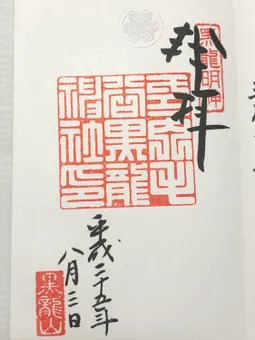 黒龍明神
奉拝
黒龍
社印
平成二十五年
八月三日
黒龍山